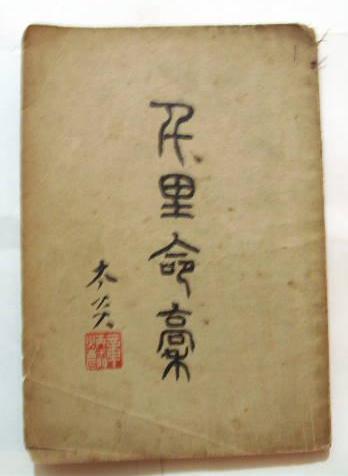 千里命稾
太炎